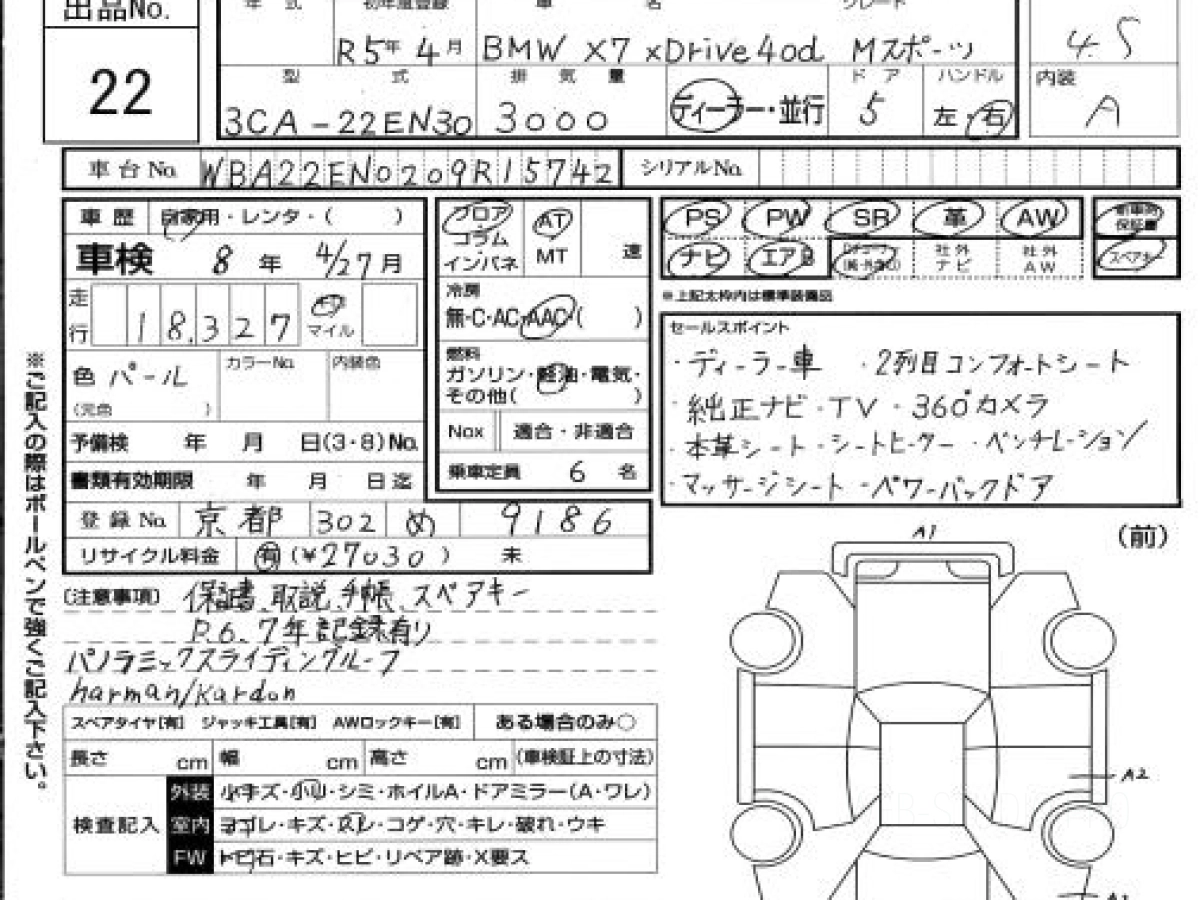 出品No.
22
年 式 初年度登録 車 名 グレード
R5年 4月 BMW X7 xDrive40d Mスポーツ 4.5
型 式 排 気 量 ドア ハンドル 内装
3CA-22EN30 3000 ディーラー・並行 5 左・右 A
車台No. WBA22EN0209R15742 シリアルNo.
車歴 自家用・レンタ・( )
車検 8年 4/27月
走行 18,327 マイル
色 パール カラーNo. 内装色
(元色 )
予備検 年 月 日(3・8)No.
書類有効期限 年 月 日迄
フロア AT
コラム
インパネ MT 速
冷房
無・C・AC・AAC( )
燃料
ガソリン・軽油・電気・
その他( )
Nox 適合・非適合
乗車定員 6 名
PS PW SR 革 AW 新車時保証書
ナビ エアB 社外ナビ 社外AW スペアキー
※上記太枠内は標準装備品
セールスポイント
・ディーラー車 ・2列目コンフォートシート
・純正ナビ・TV・360°カメラ
・本革シート・シートヒーター・ベンチレーション
・マッサージシート・パワーバックドア
登録No. 京都 302 め 9186
リサイクル料金 有(¥27030) 未
(注意事項) 保証書、取説、手帳、スペアキー
R.6、7年記録有り
パノラミックスライディングルーフ
harman/kardon
スペアタイヤ[有] ジャッキ工具[有] AWロックキー[有] ある場合のみ○
長さ cm 幅 cm 高さ cm (車検証上の寸法)
検査記入
外装 小キズ・小凹・シミ・ホイルA・ドアミラー(A・ワレ)
室内 ヨゴレ・キズ・スレ・コゲ・穴・キレ・破れ・ウキ
FW トビ石・キズ・ヒビ・リペア跡・X要ス
※ご記入の際はボールペンで強くご記入下さい。
(前)
A1
A2